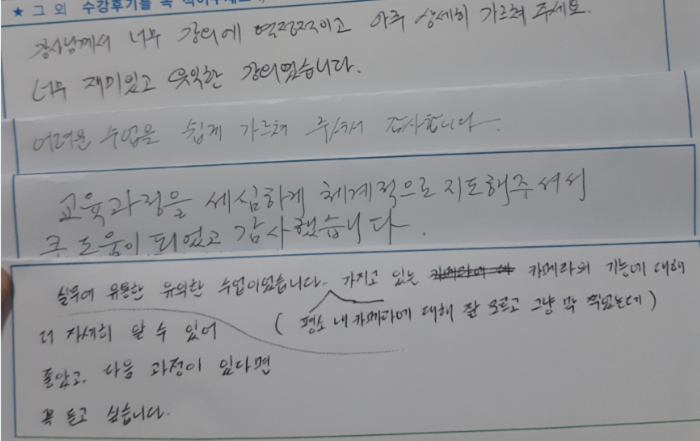 ★ 그 외 수강후기를 꼭
강사님께서 너무 강의에 열정적이고 아주 상세히 가르쳐 주세요.
너무 재미있고 유익한 강의였습니다.
어려운 수업을 쉽게 가르쳐 주셔서 감사합니다.
교육과정을 세심하게 체계적으로 지도해주셔서
큰 도움이 되었고 감사했습니다.
실무에 유용한 유익한 수업이었습니다. 가지고 있는 카메라의 기능에 대해
더 자세히 알 수 있어 (평소 내 카메라에 대해 잘 모르고 그냥 막 찍었는데)
좋았고. 다음 과정이 있다면
꼭 듣고 싶습니다.